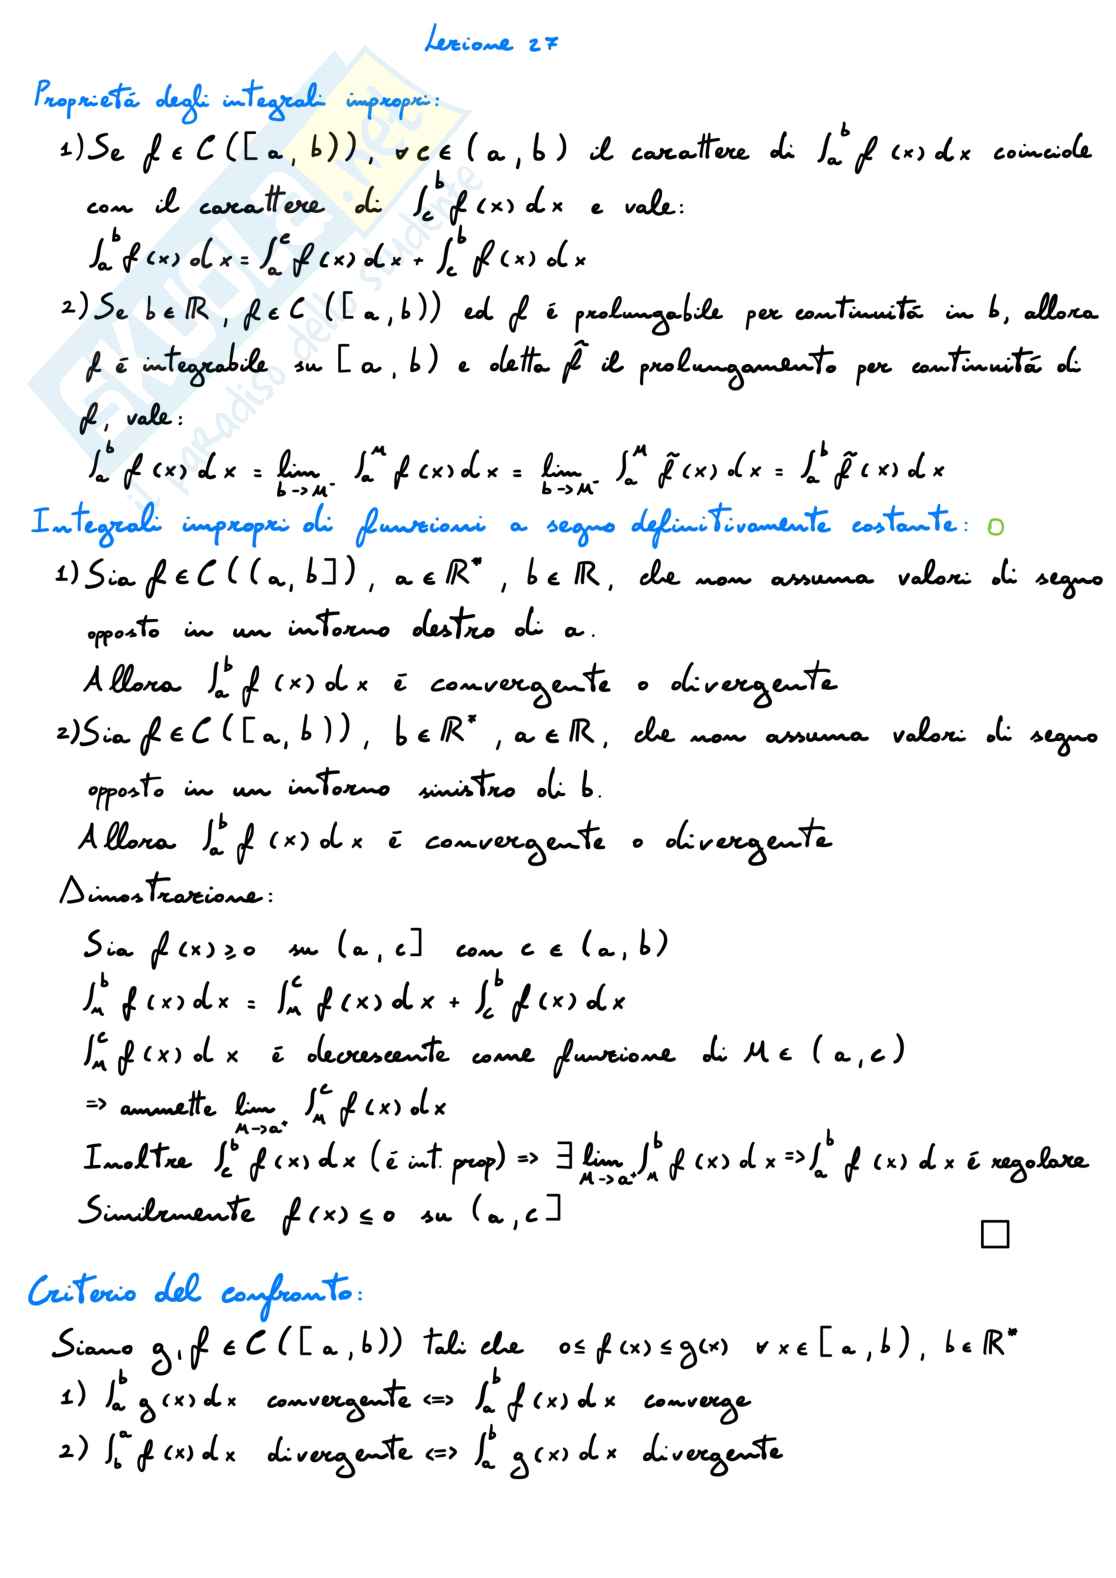 Lezione 27
Proprietá degli integrali impropri:
1) Se f ∈ C ([a, b)), ∀ c ∈ (a, b) il carattere di ∫_a^b f(x) dx coincide
con il carattere di ∫_c^b f(x) dx e vale:
∫_a^b f(x) dx = ∫_a^c f(x) dx + ∫_c^b f(x) dx
2) Se b ∈ ℝ, f ∈ C ([a, b)) ed f é prolungabile per continuitá in b, allora
f é integrabile su [a, b) e detta f̃ il prolungamento per continuitá di
f, vale:
∫_a^b f(x) dx = lim_{b->M⁻} ∫_a^M f(x) dx = lim_{b->M⁻} ∫_a^M f̃(x) dx = ∫_a^b f̃(x) dx
Integrali impropri di funzioni a segno definitivamente costante: O
1) Sia f ∈ C ((a, b]), a ∈ ℝ*, b ∈ ℝ, che non assuma valori di segno
opposto in un intorno destro di a.
Allora ∫_a^b f(x) dx é convergente o divergente
2) Sia f ∈ C ([a, b)), b ∈ ℝ*, a ∈ ℝ, che non assuma valori di segno
opposto in un intorno sinistro di b.
Allora ∫_a^b f(x) dx é convergente o divergente
Dimostrazione:
Sia f(x) ≥ 0 su (a, c] con c ∈ (a, b)
∫_M^b f(x) dx = ∫_M^c f(x) dx + ∫_c^b f(x) dx
∫_M^c f(x) dx é decrescente come funzione di M ∈ (a, c)
=> ammette lim_{M->a⁺} ∫_M^c f(x) dx
Inoltre ∫_c^b f(x) dx (é int. prop) => ∃ lim_{M->a⁺} ∫_M^b f(x) dx => ∫_a^b f(x) dx é regolare
Similmente f(x) ≤ 0 su (a, c]
□
Criterio del confronto:
Siano g, f ∈ C ([a, b)) tali che 0 ≤ f(x) ≤ g(x) ∀ x ∈ [a, b), b ∈ ℝ*
1) ∫_a^b g(x) dx convergente <=> ∫_a^b f(x) dx converge
2) ∫_b^a f(x) dx divergente <=> ∫_a^b g(x) dx divergente
SKUOLA.net
il paradiso dello studente